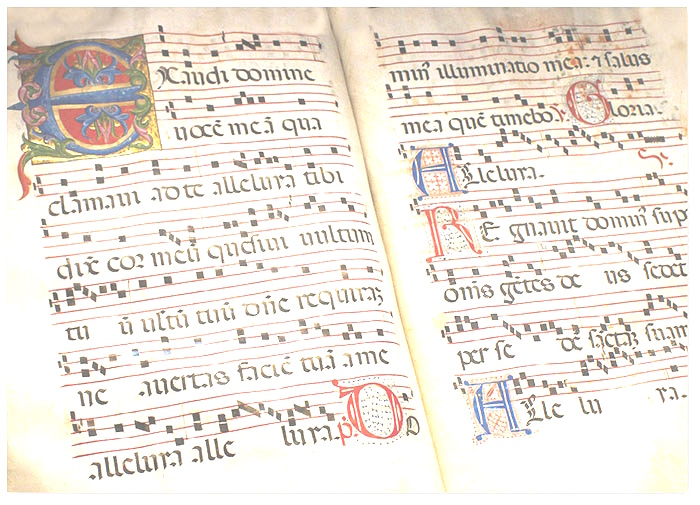 Exaudi domine
vocē meā qua
clamavi ad te alleluia tibi
dix̄ cor meū quesivi vultum
tu ū vultū tuū dn̄e requirā
ne avertas faciē tuā a me
alleluia alle luia. p. Do
min' illuminatio mea: ⁊ salus
mea quē timebo. Gloria.
Alleluia.
Regnavit domin' sup
om̄s gētes de us sedet
per se dē sāctā suam
Alle lu ia.